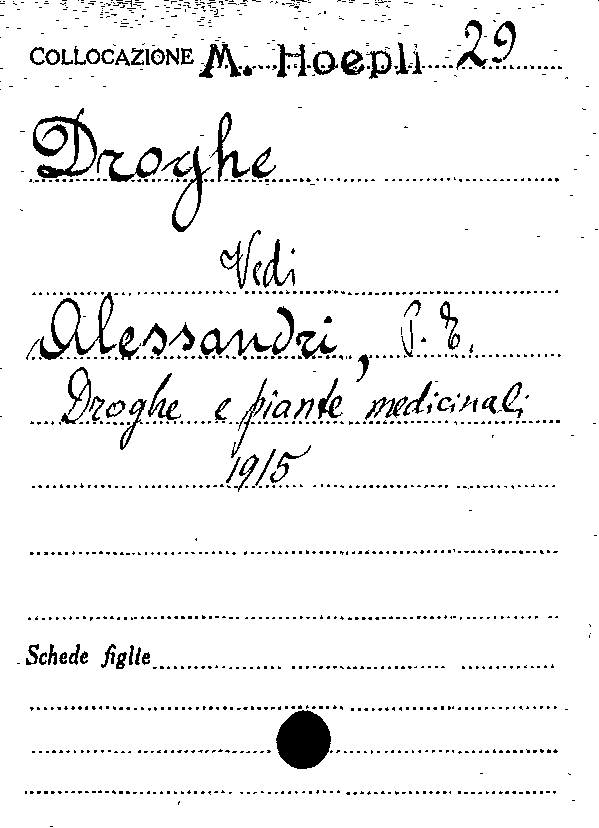 COLLOCAZIONE M. Hoepli 29
Droghe
Vedi
Alessandri, P. E.
Droghe e piante medicinali
1915
Schede figlie